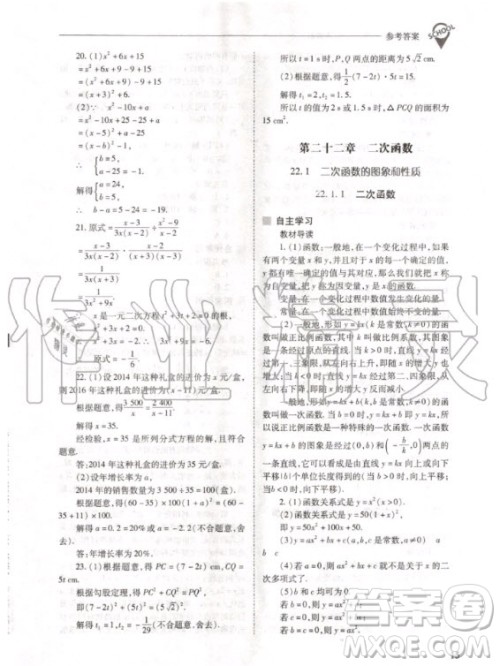 参考答案
SCHOOL
20. (1)x²+6x+15
=x²+6x+9-9+15
=(x²+6x+9)-9+15
=(x+3)²+6.
(2)∵ x²-10x+a
=x²-10x+25-25+a
=(x-5)²-25+a
=(x-b)²-1,
∴ {b=5,
a-25=-1.
解得{b=5,
a=24.
∴ b-a=5-24=-19.
21. 原式=
=
=
=
∵ x 是一元二次方程 x²+3x+2=0 的根,
∴ x²+3x=-2.
∴ 原式=-1/6.
22. (1)设 2014 年这种礼盒的进价为 x 元/盒,
则 2016 年这种礼盒的进价为(x-11)元/盒.
根据题意,得 3 500/x=2 400/(x-11).
解得 x=35.
经检验,x=35 是所列分式方程的解.
答:2014 年这种礼盒的进价为 35 元/盒.
(2)设年增长率为 a,
2014 年的销售数量为 3 500÷35=100(盒).
根据题意,得(60-35)×100(1+a)²=(60-
35+11)×100.
解得 a=0.2=20%或 a=-2.2(不符合题意,
舍去).
答:年增长率为 20%.
23. (1)根据题意,得 PC=(7-2t)cm,CQ=
5t cm.
根据勾股定理,得 PC²+CQ²=PQ²,
即(7-2t)²+(5t)²=(5√2)².
解得 t₁=1,t₂=-1/29(不符合题意,舍去).
所以 t=1 s 时,P、Q 两点的距离为 5√2 cm.
(2)根据题意,得 1/2(7-2t)·5t=15.
解得 t₁=2,t₂=1.5.
所以 t 的值为 2 s 或 1.5 s 时,△PCQ 的面积为
15 cm².
第二十二章 二次函数
22.1 二次函数的图象和性质
22.1.1 二次函数
自主学习
教材导读
1. (1)函数:一般地,在一个变化过程中,如果
有两个变量 x 与 y,并且对于 x 的每一个确定的
值,y 都有唯一确定的值与其对应,那么我们就把 x
称为自变量,把 y 称为因变量,y 是 x 的函数.
变量:在一个变化过程中数值发生变化的量.
常量:在一个变化过程中数值始终不变的量.
(2)一般地,形如 y=kx(k 是常数,k≠0)的函
数叫做正比例函数,其中 k 叫做比例系数.其图象
是一条经过原点的直线.当 k>0 时,y 随 x 的增大
而增大;当 k<0 时,y 随 x 的增大而减小.
(3)一般地,形如 y=kx+b(k≠0)的函数叫
做一次函数.当 b=0 时,y=kx+b 即 y=kx,所以
说正比例函数是一种特殊的一次函数.一次函数
y=kx+b 的图象是经过(0,b)和(-b/k,0)两点的
一条直线,它可以看作由直线 y=kx 向上或向下
平移|b|个单位长度得到的(当 b>0 时,向上平移;
当 b<0 时,向下平移).
2. (1)函数关系式是 y=6x²
(2)函数关系式是 y=50(1+x)²,
即 y=50x²+100x+50.
(3)y=ax²+bx+c(a、b、c 是常数,a≠0) a
b c
(4)若 a=0,则 ax²+bx+c 就不是关于 x 的
二次多项式了.
(5)b 和 c 均可为 0.
若 b=0,则 y=ax²+c;
若 c=0,则 y=ax²+bx;
作业精灵
答案圈
MXQE.COM